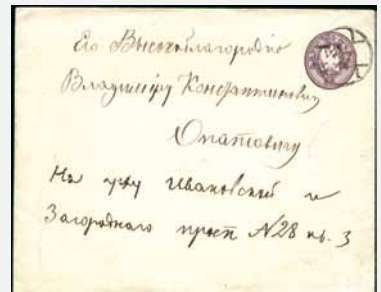 Его Высокоблагородию
Владимиру Константиновичу
Опатовичу
На углу Ивановской и
Загороднаго просп №28 кв. 3